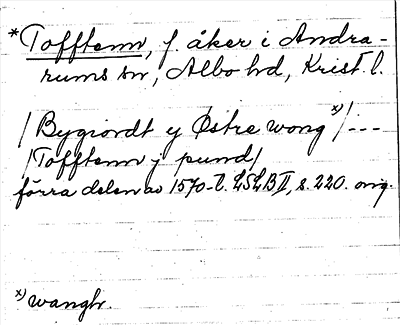 *Tofftenn, f. åker i Andra-
rums sn, Albo hd, Krist. l.
/Bygiordt y Østre wong x)/---
/Tofftenn j pund/
förra delen av 1570-t. LSLB II, s. 220. orig.
x) wangh.